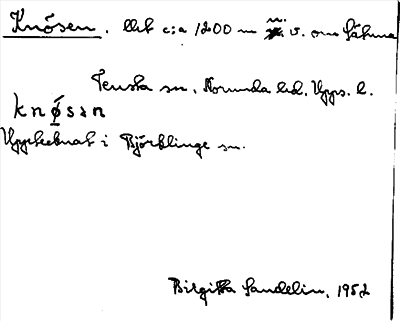 Knösen, Utit c:a 1200 m n. v. om Sätuna
Tensta sn, Norunda hd, Upps. l.
knøsan
Upptecknat i Björklinge sn.
Birgitta Sandelin, 1952